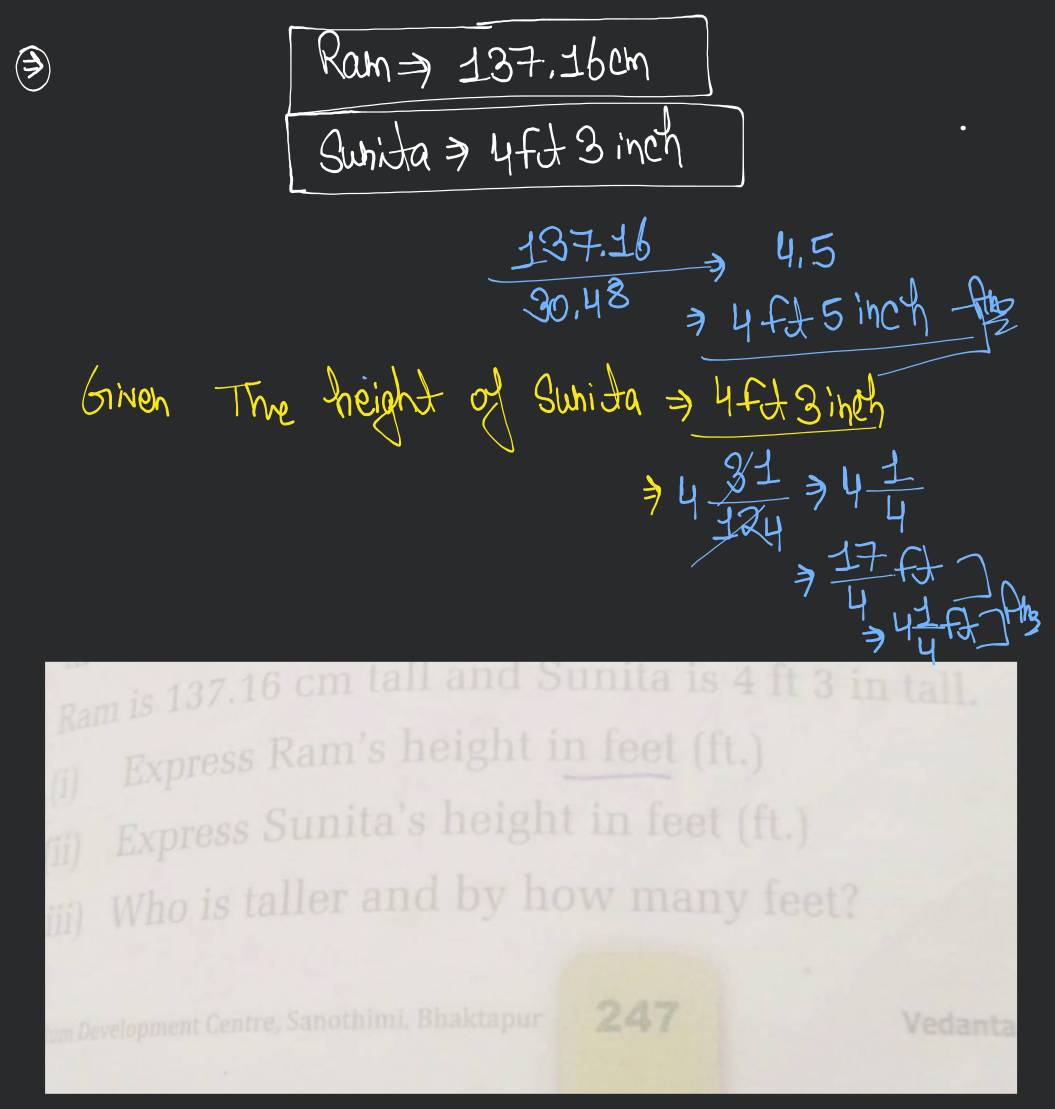 ⇒ Ram ⇒ 137.16cm
Sunita ⇒ 4ft 3 inch
137.16
30.48
⇒ 4.5
⇒ 4 ft 5 inch Ans
Given The height of Sunita ⇒ 4ft 3 inch
⇒ 4 3 1 / 12 4 ⇒ 4 1/4
⇒ 17/4 ft
⇒ 4 1/4 ft Ans
Ram is 137.16 cm tall and Sunita is 4 ft 3 in tall.
(i) Express Ram's height in feet (ft.)
(ii) Express Sunita's height in feet (ft.)
iii) Who is taller and by how many feet?
Development Centre, Sanothimi, Bhaktapur 247 Vedanta